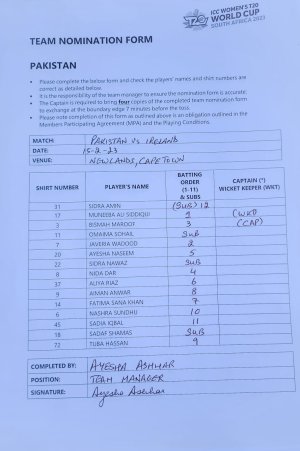 ICC WOMEN'S T20
WORLD CUP
SOUTH AFRICA 2023
TEAM NOMINATION FORM
PAKISTAN
• Please complete the below form and check the players' names and shirt numbers are
correct as detailed below.
• It is the responsibility of the team manager to ensure the nomination form is accurate.
• The Captain is required to bring four copies of the completed team nomination form
to exchange at the boundary edge 7 minutes before the toss.
• Please note completion of this form as outlined above is an obligation outlined in the
Members Participating Agreement (MPA) and the Playing Conditions.
MATCH: PAKISTAN VS IRELAND
DATE: 15-2-23
VENUE: NEWLANDS, CAPETOWN
SHIRT NUMBER PLAYER'S NAME BATTING ORDER (1-11) & SUBS CAPTAIN (*) WICKET KEEPER (WKT)
31 SIDRA AMIN (SUB) 12
17 MUNEEBA ALI SIDDIQUI 1 (WKT)
3 BISMAH MAROOF 3 (CAP)
11 OMAIMA SOHAIL SUB
7 JAVERIA WADOOD 2
20 AYESHA NASEEM 5
22 SIDRA NAWAZ SUB
8 NIDA DAR 4
37 ALIYA RIAZ 6
9 AIMAN ANWAR 8
14 FATIMA SANA KHAN 7
6 NASHRA SUNDHU 10
45 SADIA IQBAL 11
18 SADAF SHAMAS SUB
72 TUBA HASSAN 9
COMPLETED BY: AYESHA ASHHAR
POSITION: TEAM MANAGER
SIGNATURE: Ayesha Ashhar